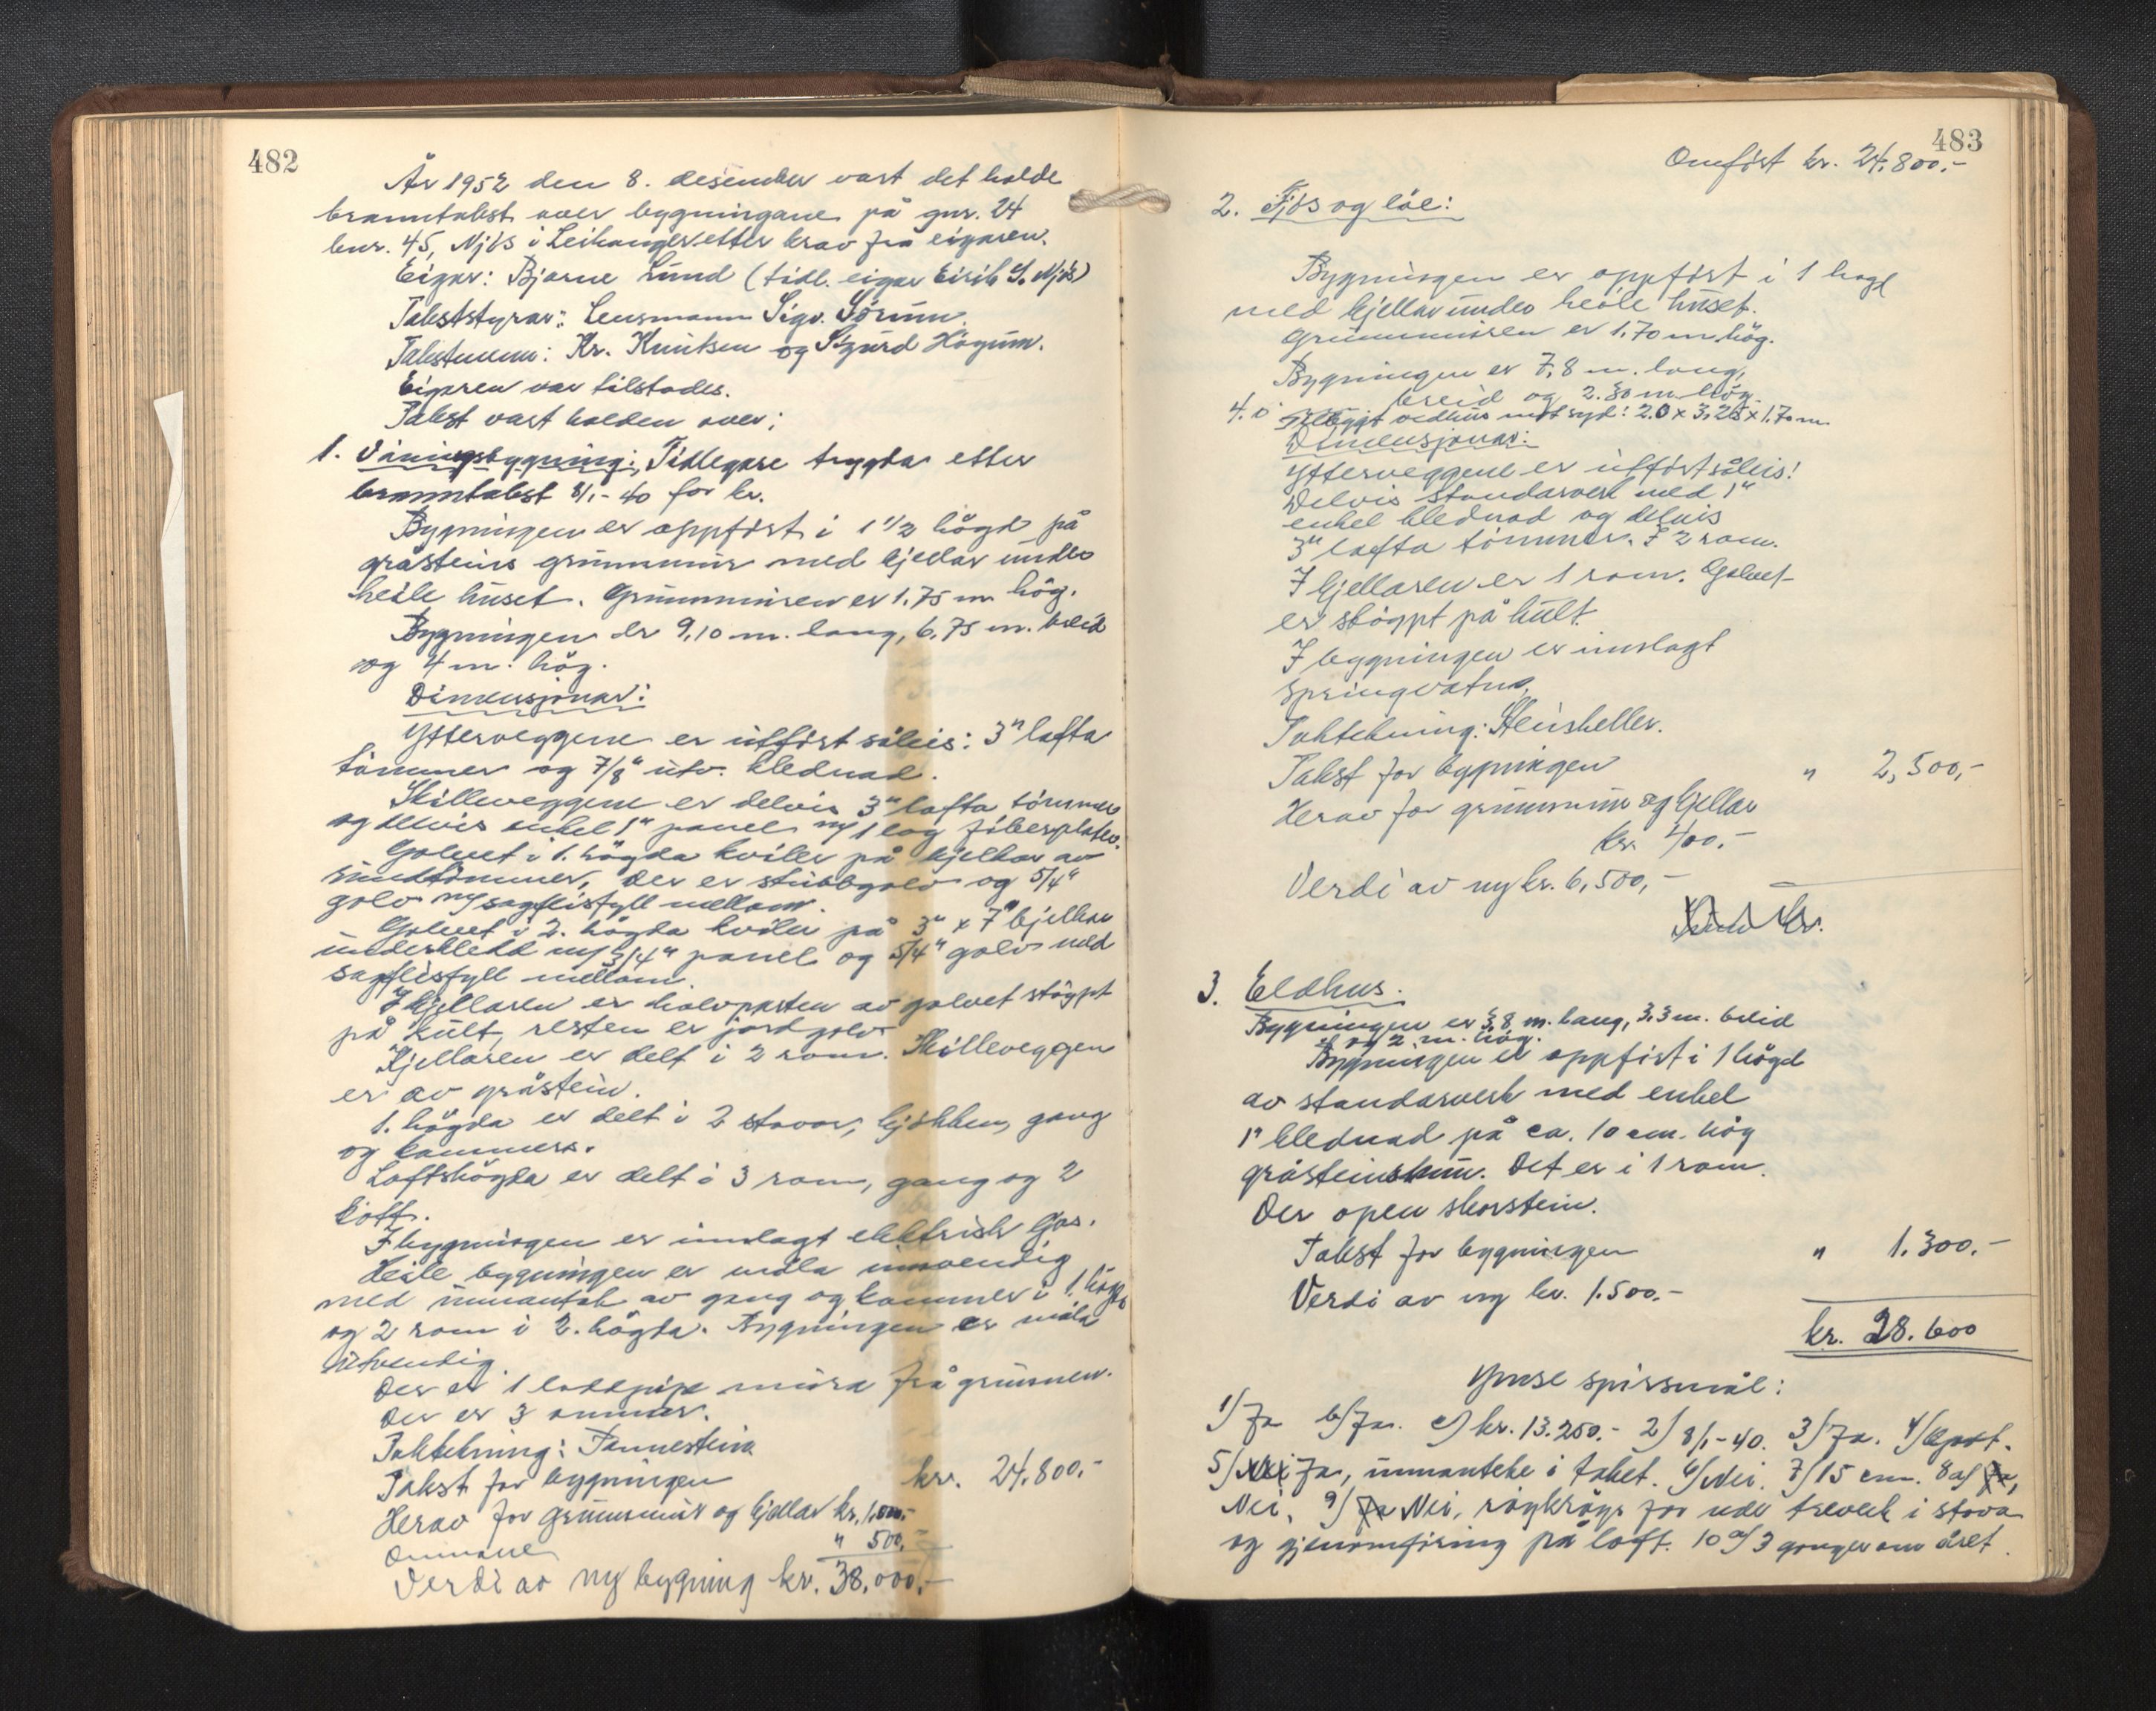 482
År 1952 den 8. desember vart det halde
branntakst over bygningane på gnr. 24
bnr. 45, Njøs i Leikanger etter krav frå eigaren.
Eigar: Bjarne Lund (tidl. eigar Eirik S. Njøs)
Takststyrar: Lensmann Sigv. Sörum.
Takstmenn: Kr. Knutsen og Sigurd Högum.
Eigaren var tilstades.
Takst vart halden over:
1. Våningsbygning: Tidlegare trygda etter
branntakst 8/1-40 for kr.
Bygningen er oppført i 1 1/2 högd på
gråsteins grunnmur med kjellar under
heile huset. Grunnmuren er 1.75 m hög.
Bygningen er 9,10 m. lang, 6,75 m. breid
og 4 m. hög.
Dimensjonar:
Ytterveggene er utfört såleis: 3" lafta
tömmer og 7/8" utv. klednad.
Skilleveggene er delvis 3" lafta tömmer
og delvis enkel 1" panel m/ 1 lag fiberplater.
Golvet i 1. högda kviler på bjelkar av
rundtömmer, der er stubbgolv og 5/4"
golv m/ sagflisfyll mellom.
Golvet i 2. högda kviler på 3" x 7" bjelkar
underkledd m/ 3/4" panel og 5/4" golv med
sagflisfyll mellom.
I kjellaren er halvparten av golvet stöypt
på kult, resten er jordgolv.
Kjellaren er delt i 2 rom. Skilleveggen
er av gråstein.
1. högda er delt i 2 stover, kjökken, gang
og kammers.
Loftshögda er delt i 3 rom, gang og 2
kott.
I bygningen er innlagt elektrisk ljos.
Heile bygningen er måla innvendig
med unnantak av gang og kammer i 1. högda
og 2 rom i 2. högda. Bygningen er måla
utvendig.
Der er 1 loddpipe mura frå grunnen.
Der er 3 omnar.
Taktekning: Pannestein
Takst for bygningen kr. 24.800.-
Herav for grunnmur og kjellar kr. 1.000.-
Omnane " 500,-
Verdi av ny bygning kr. 38.000.-
483
Omfört kr. 24.800.-
2. Fjös og löe:
Bygningen er oppfört i 1 högd
med kjellar under heile huset.
Grunnmuren er 1.70 m hög.
Bygningen er 7,8 m. lang,
4.0 breid og 2.80 m. hög.
Tilbygt vedhus mot syd: 2.0 x 3,25 x 1.70 m.
Dimensjonar:
Ytterveggene er utfört såleis:
Delvis standarverk med 1"
enkel klednad og delvis
3" lafta tömmer. I 2 rom.
I kjellaren er 1 rom. Golvet
er stöypt på kult.
I bygningen er innlagt
springvatn.
Taktekning: Steinheller.
Takst for bygningen " 2,500,-
Herav for grunnmur og kjellar
kr. 400.-
Verdi av ny kr. 6,500,-
3. Eldhus.
Bygningen er 3,8 m. lang, 3,3 m. breid
og 2 m. hög.
Bygningen er oppfört i 1 högd
av standarverk med enkel
1" klednad på ca. 10 cm. hög
gråsteinsmur. Det er i 1 rom.
Der open skorstein.
Takst for bygningen " 1.300.-
Verdi av ny kr. 1.500.-
kr. 28.600
Ymse spörsmål:
1/ Ja b/ Ja. c) kr. 13.250.- 2) 8/1-40. 3/ Ja. 4/
5/ Ja, unnanteke i taket. 6/ Nei. 7/ 15 cm. 8a/ Ja,
Nei, 9/ Ja Nei, röykröyr for nær treverk i stova
og gjenomföring på loft. 10 a/ 3 gonger om året.